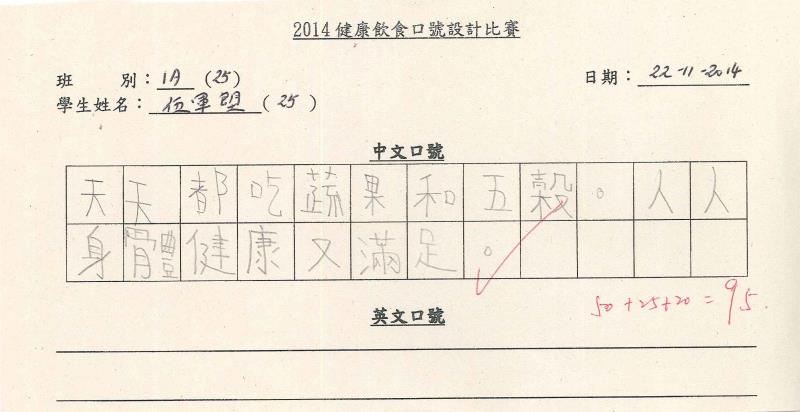 2014健康飲食口號設計比賽
班 別：1A (25)
日期：22-11-2014
學生姓名：伍軍 (25)
中文口號
天天都吃蔬果和五穀。人人
身體健康又滿足。
50+25+20=95.
英文口號